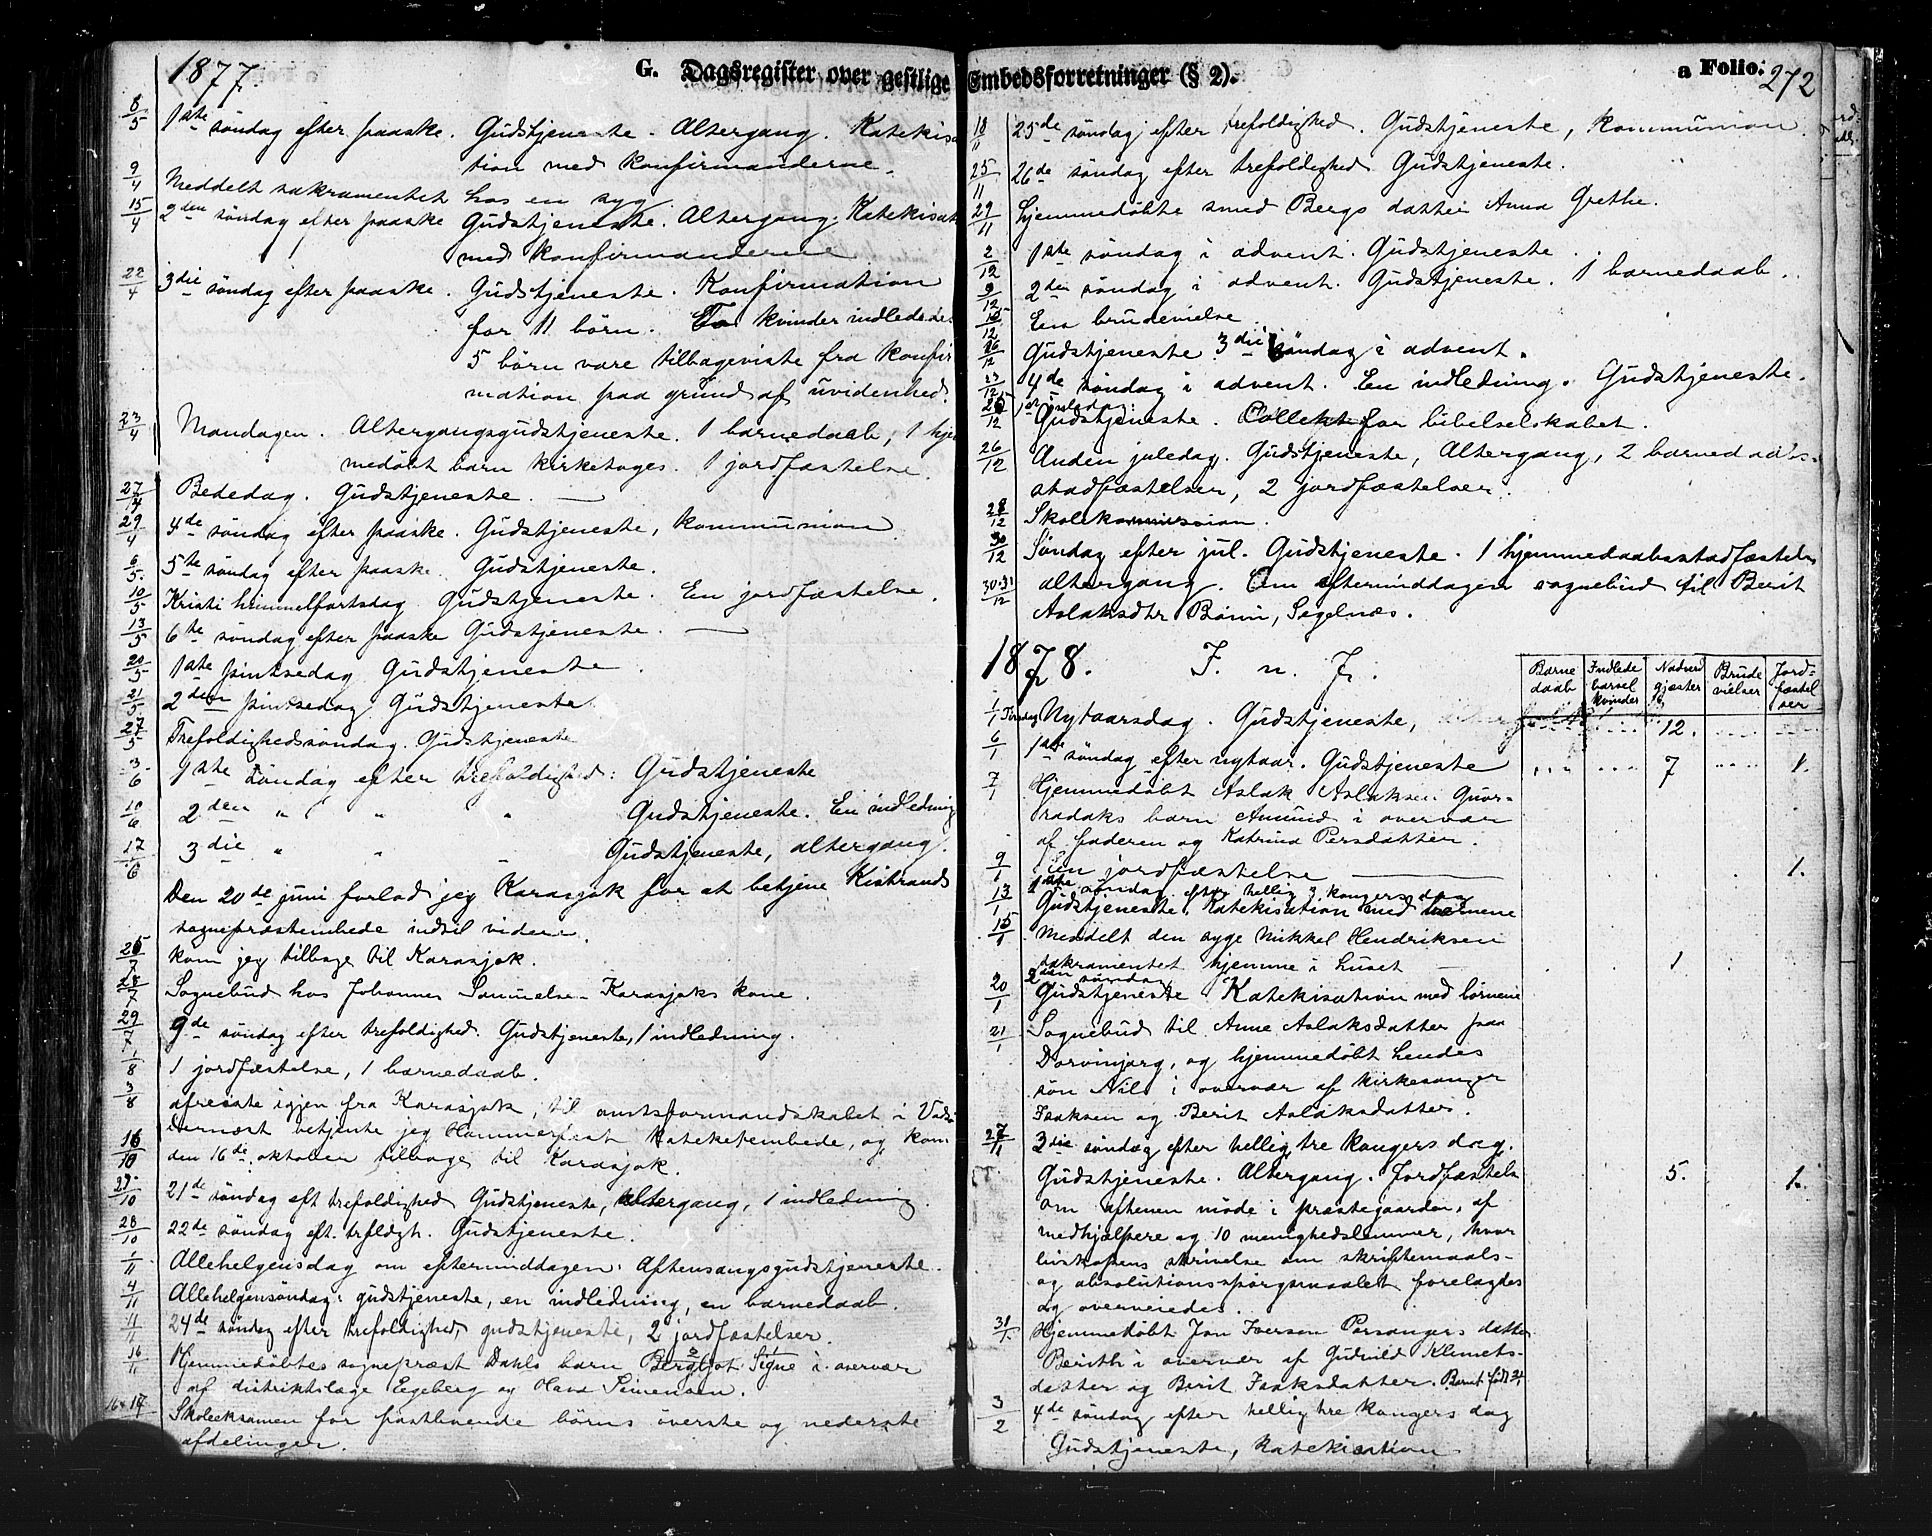 1877.
G. Dagsregister over gestlige
8/5 1ste søndag efter paaske. Gudstjeneste. Altergang. Katekisa
tion med konfirmanderne.
9/4 Meddelt sakramentet hos en syg.
15/4 2den søndag efter paaske Gudstjeneste. Altergang. Katekisat
med konfirmanderne
22/4 3die søndag efter paaske. Gudstjeneste. Konfirmation
for 11 börn. To kvinder indledede.
5 börn vare tilbageviste fra konfir
mation paa grund af uvidenhed.
23/4 Mandagen. Altergangsgudstjeneste. 1 barnedaab, 1 hje
medöbt barn kirketoges. 1 jordfæstelse
27/4 Bededag. Gudstjeneste. —
29/4 4de søndag efter paaske. Gudstjeneste, kommunion
6/5. 5te søndag efter paaske. Gudstjeneste.
10/5 Kristi himmelfartsdag Gudstjeneste. En jordfæstelse.
13/5 6te søndag efter paaske Gudstjeneste. —
20/5 1ste pintsedag Gudstjeneste.
21/5 2den pintsedag Gudstjeneste
27/5 Trefoldighedssöndag. Gudstjeneste
3/6 1ste söndag efter trefoldighed: Gudstjeneste
10/6 2den " " " Gudstjeneste. En indledning
17/6 3die " " " Gudstjeneste, altergang.
Den 20de juni forlod jeg Karasjok for at betjene Kistrands
sognepræstembede indtil videre.
25/7 kom jeg tilbage til Karasjok.
28/7 Sognebud hos Johannes Samuelsen Karasjoks kone.
29/7 9de söndag efter trefoldighed. Gudstjeneste, 1 indledning.
1/8 1 jordfæstelse, 1 barnedaab.
3/8 afreiste igjen fra Karasjok, til amtsformandskabet i Vads
dernæst betjente jeg Hammerfest kateketembede, og kom
16/10 den 16de oktober tilbage til Karasjok.
21/10 21de søndag eft trefoldighed Gudstjeneste, altergang, 1 indledning
28/10 22de søndag eft. trfldgh. Gudstjeneste.
1/11 Allehelgensdag om eftermiddagen: Aftensangsgudstjeneste.
4/11 Allehelgensöndag: gudstjeneste, en indledning, en barnedaab.
11/11 24de söndag efter trefoldighed, gudstjeneste, 2 jordfæstelser.
16/11 Hjemmedöbtes sognepræst Dahls barn Bergljot Signe i overvær
af distriktslæge Egeberg og Hans Simensen.
16+17 Skoleeksamen for fastboende börns överste og nederste
afdelinger.
Embedsforretninger (§ 2).
a Folio. 272
18/11 25de søndag efter trefoldighed. Gudstjeneste, kommunion.
25/11 26de søndag efter trefoldighed Gudstjeneste.
29/11 hjemmedøbte smed Bergs datter Anna Grethe.
2/12 1ste søndag i advent. Gudstjeneste
9/12 2den søndag i advent. Gudstjeneste. 1 barnedaab.
15/12 En brudevielse
16/12 Gudstjeneste 3die søndag i advent.
23/12 4de søndag i advent. En indledning. Gudstjeneste.
25/12 1ste juledag. Gudstjeneste. Collekt for bibelselskabet.
26/12 Anden juledag. Gudstjeneste, Altergang, 2 barnedaabs-
stadfæstelser, 2 jordfæstelser.
28/12 Skolekommission.
30/12 Søndag efter jul. Gudstjeneste. 1 hjemmedaabsstadfæstelse
altergang. Om eftermiddagen sognebud til Berit
30-31/12 Aslaksdtr Bönn, Segelnæs.
1878. I. n. J.
Barne daab | Indlede barsel kvinder | Nadverd gjæster | Brude vielser | Jord- fæstel ser
1/1 Tirsdag Nytaarsdag. Gudstjeneste, 12.
6/1 1ste søndag efter nytaar. Gudstjeneste 7 1.
7/1 Hjemmedøbt Aslak Aslaksen Guor-
radaks barn Amund i overvær
af faderen og Katrina Persdatter.
9/1 En jordfæstelse — 1.
1ste søndag efter hellig 3 kongersdag
13/1 Gudstjeneste. Katekisation med börnene
15/1 Meddelt den syge Mikkel Hendriksen
sakramentet hjemme i huset — 1
2den søndag
20/1 Gudstjeneste Katekisation med börnene
21/1 Sognebud til Anne Aslaksdatter paa
Dorvinjarg, og hjemmedöbt hendes
sön Nils i overvær af kirkesanger
Isaksen og Berit Aslaksdatter.
27/1 3die søndag efter hellig tre kongers dag.
Gudstjeneste. Altergang. Jordfæstels 5. 1.
om aftenen møde i præstegaarden, af
medhjælpere og 10 menighedslemmer, hvor
biskopens skrivelse om skriftemaals-
og absolutionsspörgsmaalet forelagdes
og overveiedes.
31/1 Hjemmedöbt Jon Iversen Porsangers datter
Berith i overvær af Gudvild Klemets-
datter og Berit Isaksdatter. Barnet født
3/2 4de søndag efter hellig tre kongers dag
Gudstjeneste, katekisation